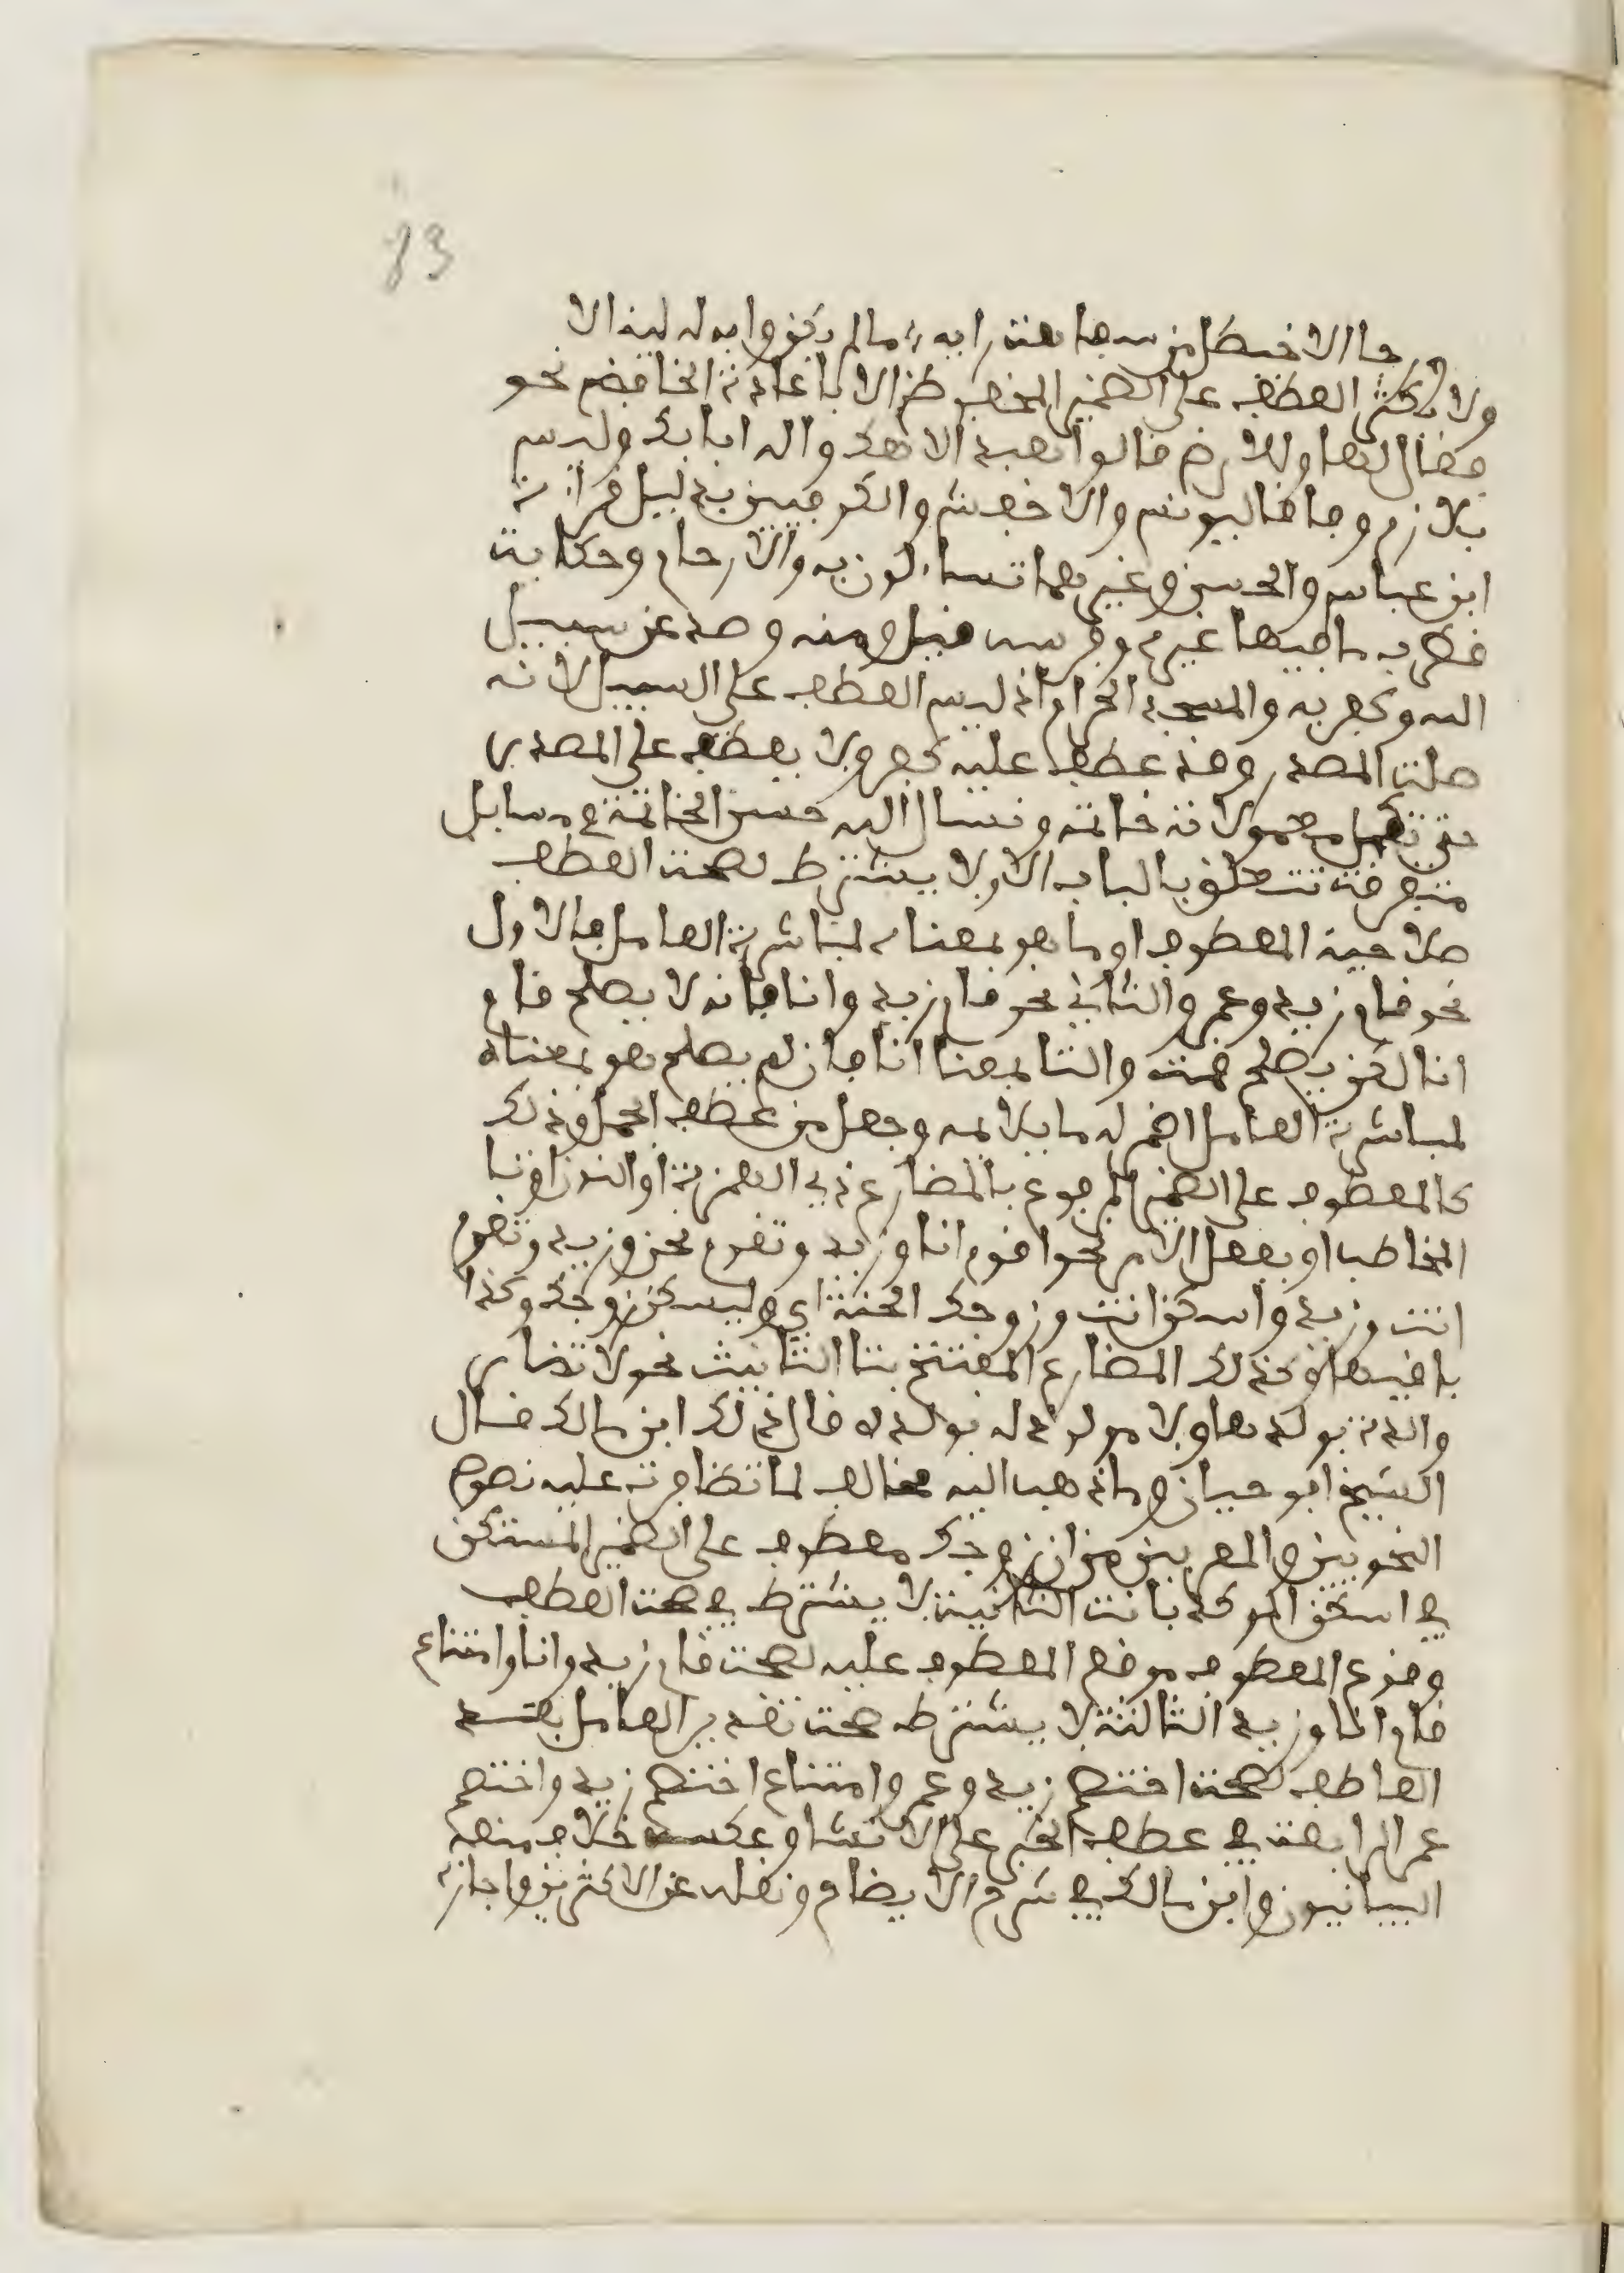 83
ورجا الاخيطل من سفاهة رايه ما لم يكن واب له لينالا
ولا يكثر العطف على الضمير المخفوظ الا باعادة الخافض نحو
فقال لها وللارض قالوا نعبد الاهك واله ابايك وليس
بلازم وفاقا ليونس والاخفش والكوفيين بدليل قراءة
ابن عباس والحسن وغيرهما تساءلون به والارحام وحكاية
قطرب ما فيها غيره وفرسه قيل ومنه وصد عن سبيل
الله وكفر به والمسجد الحرام اذ ليس العطف على السبيل لانه
صلة المصدر وقد عطف عليه كفر ولا يعطف على المصدر
حتى تكمل معمولاته خاتمة ونسال الله حسن الخاتمة في مسايل
متفرقة تتعلق بالباب الاولا يشترط لصحة العطف
صلاحية المعطوف او ما هو بمعناه لمباشرة العامل فالاول
نحو قام زيد وعمرو والثاني نحو قام زيد وانا فانه لا يصلح قام
انا لكن يصلح قمت والتا بمعنا انا فان لم يصلح هو بمعناه
لمباشرة العامل اضمر له ما يلايمه وجعل من عطف الجمل وذلك
كالمعطوف على الضمير المرفوع بالمضارع ذي الهمزة او النون او تا
المخاطب او بفعل الامر نحو اقوم انا وزيد وتقوم نحن وزيد وتقوم
انت وزيد واسكن انت وزوجك الجنة اي وليسكن زوجك وكذا
باقيها وكذلك المضارع المفتتح بتا التانيث نحو لا تضار
والدة بولدها ولا مولود له بولده قال ذلك ابن مالك قال
الشيخ ابو حيان وما ذهب اليه مخالف لما تظافرت عليه نصوص
النحويين والمعربين من ان زوجك معطوف على الضمير المستكن
في اسكن الموكد بانت الثانية لا يشترط في صحة العطف
وقوع المعطوف موقع المعطوف عليه لصحة قام زيد وانا وامتناع
قام انا وزيد الثالثة لا يشترط صحة تقدير العامل بعد
العاطف لصحة اختصم زيد وعمرو وامتناع اختصم زيد واختصم
عمر الرابعة في عطف الخبر على الانشا وعكسه خلاف منعه
البيانيون وابن مالك في شرح الايضاح ونقله عن الاكثرين واجازه